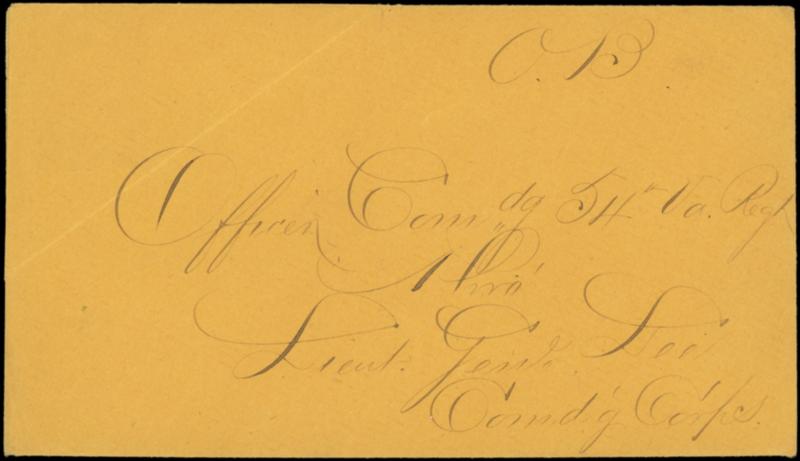 O.B.
Officer Comdg 54th Va. Regt
Thro'
Lieut. Genl. Lee
Comd'g Corps.